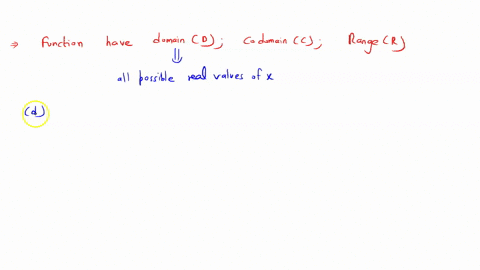 ⇒ Function have domain (D); Codomain (C); Range (R)
⇓
all possible real values of x
(d)